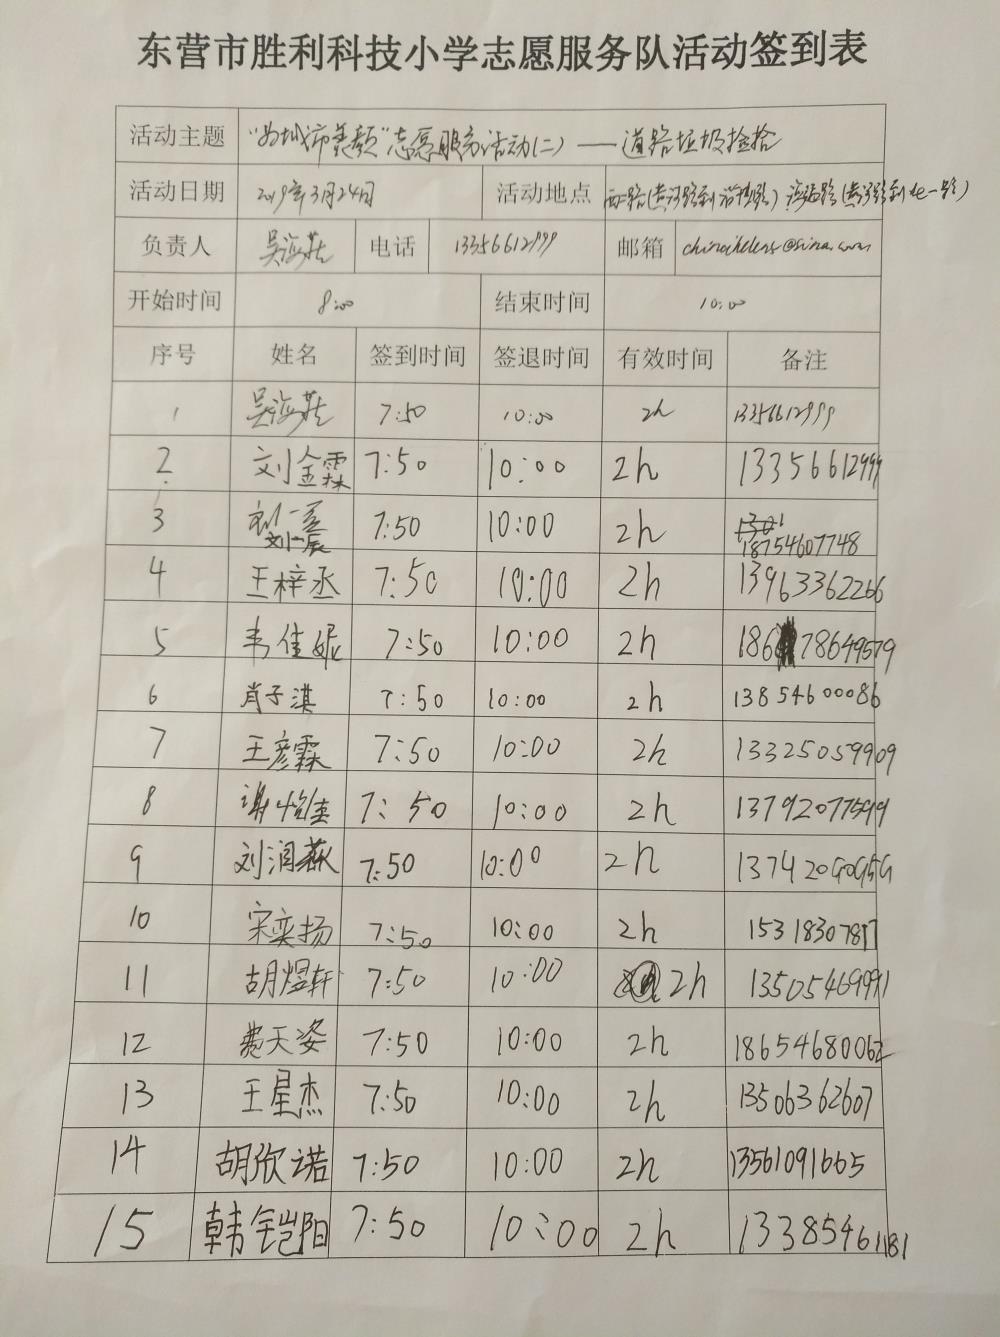 东营市胜利科技小学志愿服务队活动签到表
活动主题 "为城市美颜"志愿服务活动(二)——道路垃圾捡拾
活动日期 2019年3月24日 活动地点 西二路(黄河路到 路) 路(黄河路到北一路)
负责人 吴海燕 电话 13356612999 邮箱 @sina.com
开始时间 8:00 结束时间 10:00
序号 姓名 签到时间 签退时间 有效时间 备注
1 吴海燕 7:50 10:00 2h 13356612999
2 刘金霖 7:50 10:00 2h 13356612999
3 刘一辰 7:50 10:00 2h
刘一辰 18754607748
4 王梓丞 7:50 10:00 2h 13963362266
5 韦佳妮 7:50 10:00 2h 18678649579
6 肖子淇 7:50 10:00 2h 13854600086
7 王彦霖 7:50 10:00 2h 13325059909
8 谢怡 7:50 10:00 2h 13792077599
9 刘润 7:50 10:00 2h
10 宋奕扬 7:50 10:00 2h 15318307817
11 胡煜轩 7:50 10:00 2h 13505469991
12 费天姿 7:50 10:00 2h 18654680062
13 王星杰 7:50 10:00 2h 13506362607
14 胡欣诺 7:50 10:00 2h 13561091665
15 韩 阳 7:50 10:00 2h 13385461181